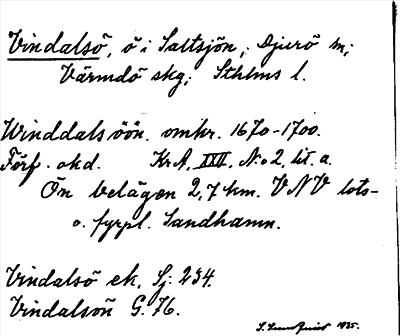 Vindalsö, ö i Saltsjön, Djurö sn;
Värmdö skg; Sthlms l.
Winddals öön. omkr. 1670-1700.
Förf. okd. KrA, XXII, N:o 2, lit. a.
Ön belägen 2,7 km. VNV lots-
o. fyrpl. Sandhamn.
Vindalsö ek. Sj. 234.
Vindalsön G. 76.
1935.